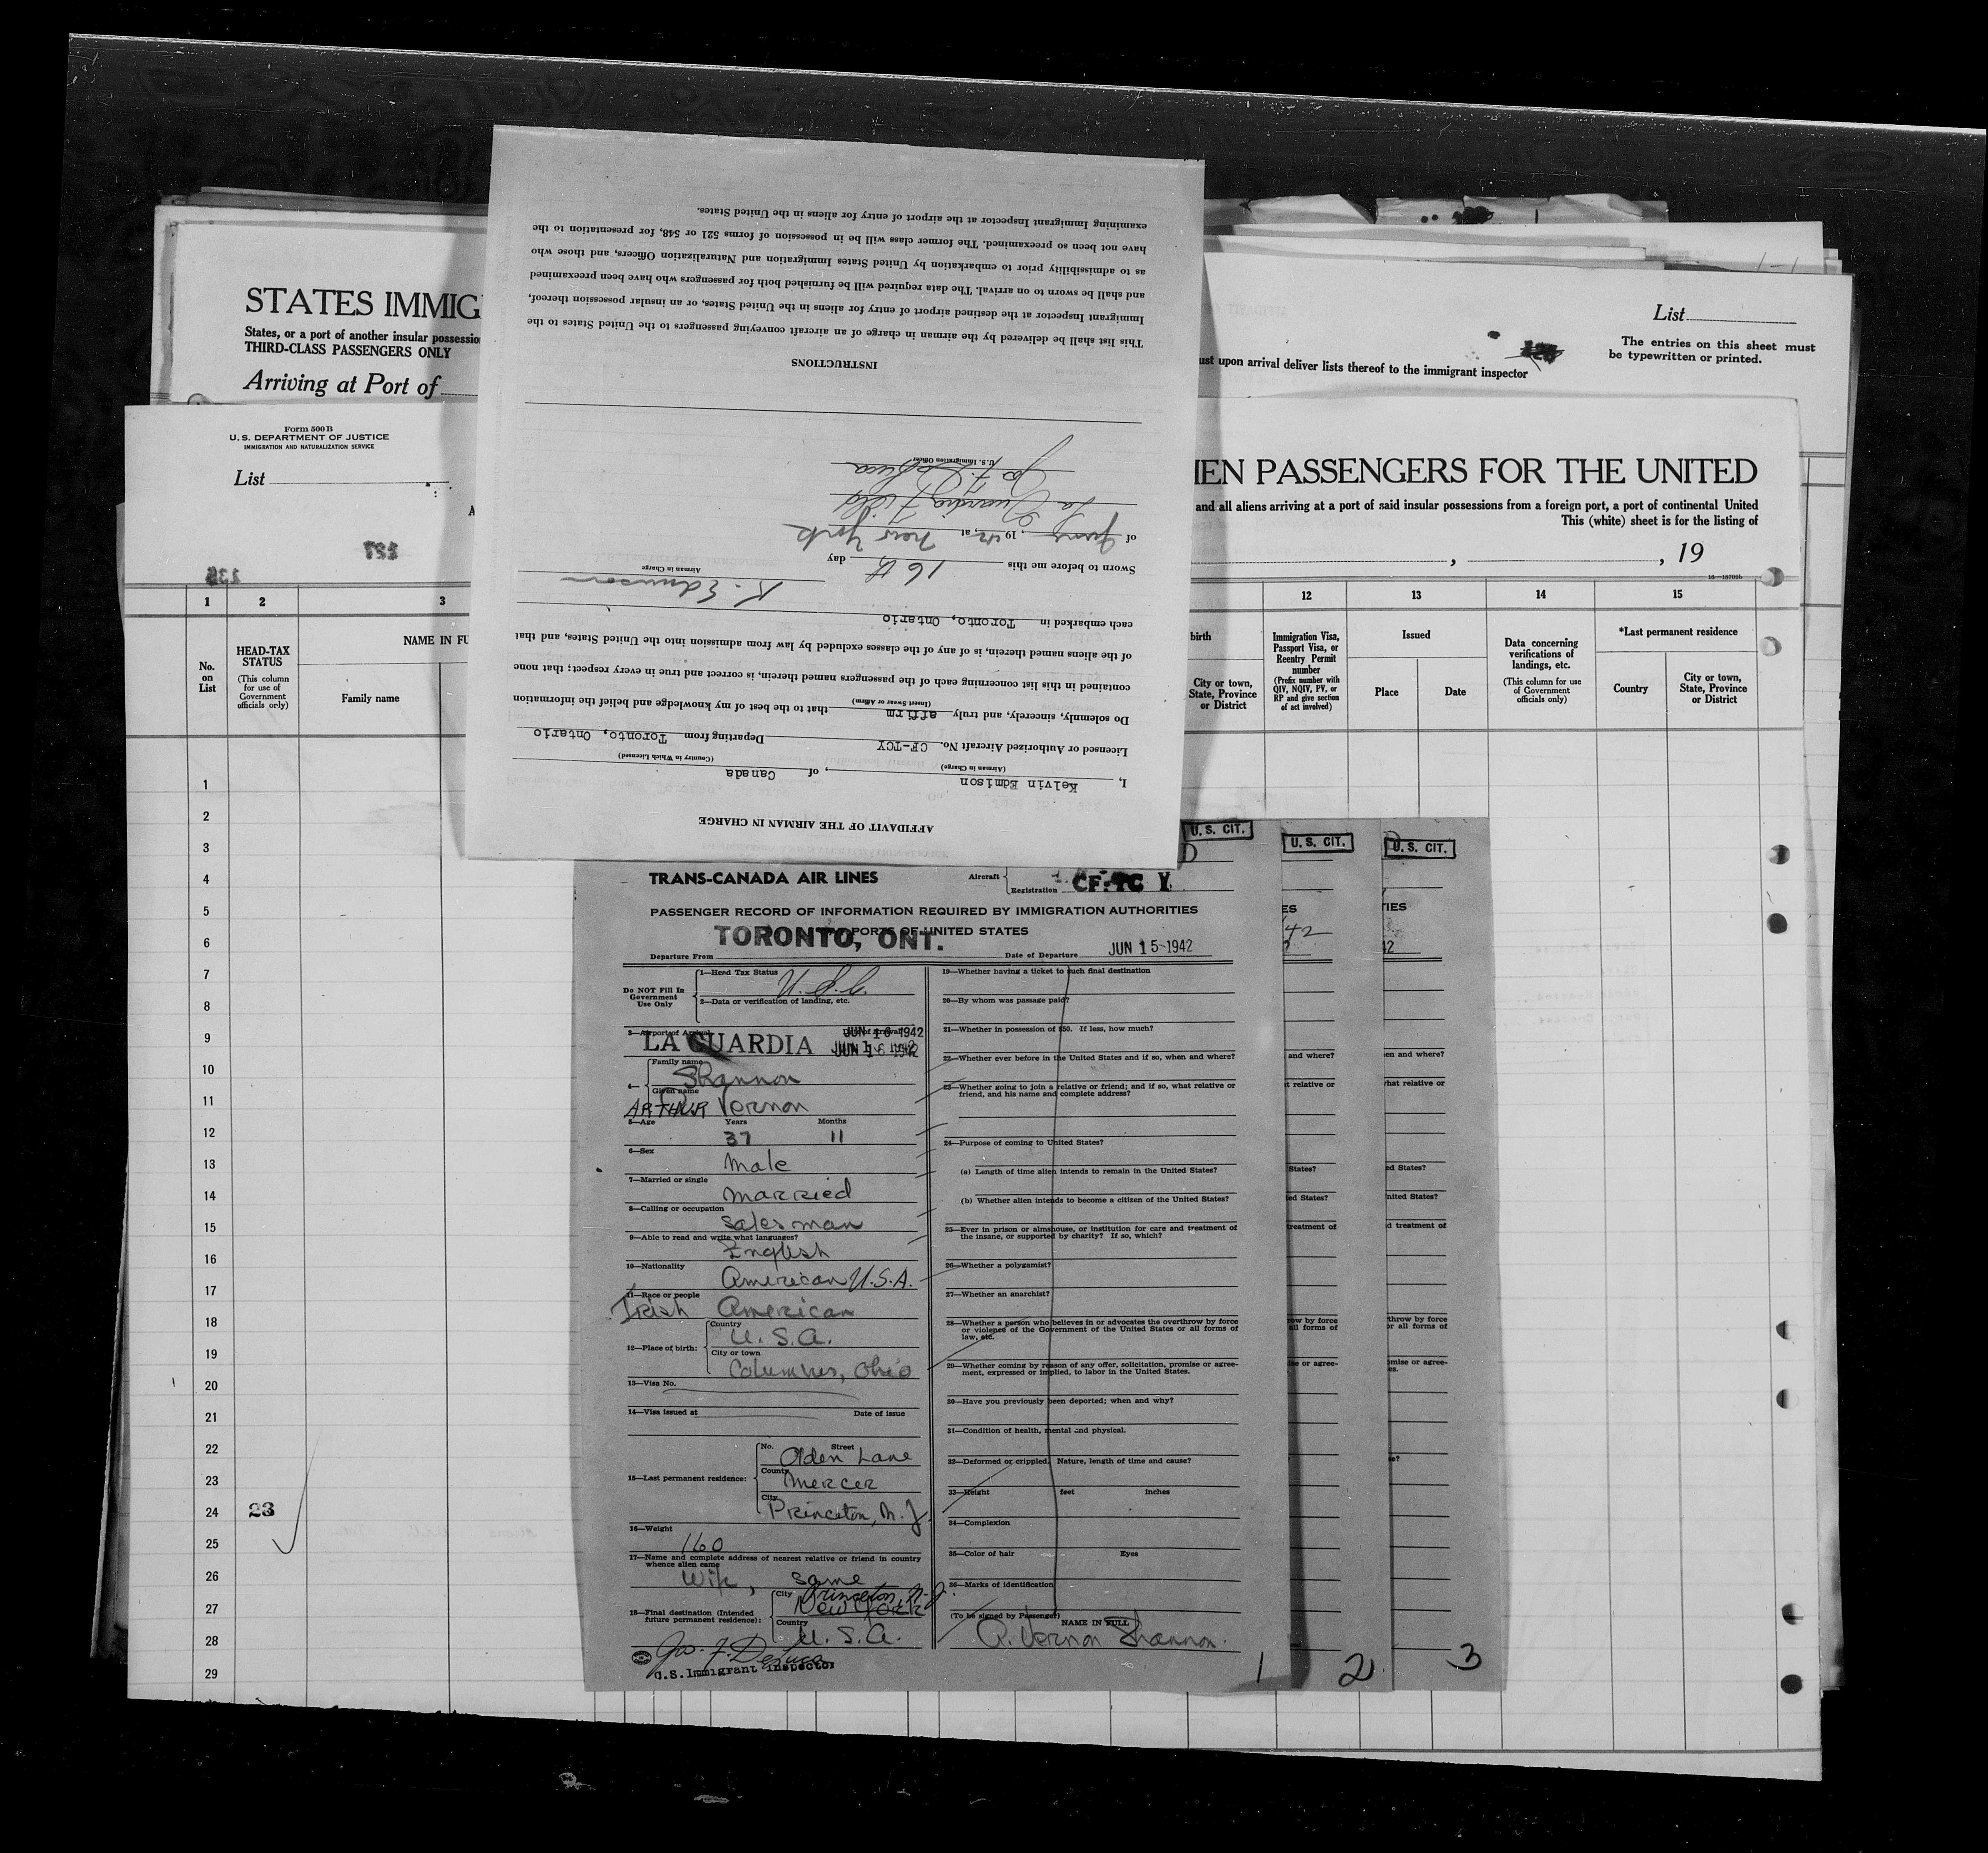 This list shall be delivered by the airman in charge of an aircraft conveying passengers to the United States to the
Immigrant Inspector at the destined airport of entry for aliens in the United States, or an insular possession thereof,
and shall be sworn to on arrival. The data required will be furnished both for passengers who have been preexamined
as to admissibility prior to embarkation by United States Immigration and Naturalization Officers, and those who
have not been so preexamined. The former class will be in possession of forms 521 or 548, for presentation to the
examining Immigrant Inspector at the airport of entry for aliens in the United States.
INSTRUCTIONS
AFFIDAVIT OF THE AIRMAN IN CHARGE
I, Kelvin Edmison, of Canada
(Airman in Charge) (Country in Which Licensed)
Licensed or Authorized Aircraft No. CF-TCY Departing from Toronto, Ontario
Do solemnly, sincerely, and truly affirm that to the best of my knowledge and belief the information
(Insert Swear or Affirm)
contained in this list concerning each of the passengers named therein, is correct and true in every respect; that none
of the aliens named therein, is of any of the classes excluded by law from admission into the United States, and that
each embarked in Toronto, Ontario
K. Edmison
Airman in Charge
Sworn to before me this 16th day
of June, 1942, at New York
La Guardia Field
U.S. Immigration Officer
STATES IMMIG
States, or a port of another insular possessio
THIRD-CLASS PASSENGERS ONLY
Arriving at Port of
List
The entries on this sheet must
be typewritten or printed.
ust upon arrival deliver lists thereof to the immigrant inspector
Form 500 B
U. S. DEPARTMENT OF JUSTICE
IMMIGRATION AND NATURALIZATION SERVICE
List
IEN PASSENGERS FOR THE UNITED
and all aliens arriving at a port of said insular possessions from a foreign port, a port of continental United
This (white) sheet is for the listing of
, , 19
1 2 3 12 13 14 15
No. on List
HEAD-TAX STATUS
(This column for use of Government officials only)
NAME IN FU
Family name
birth
City or town, State, Province or District
Immigration Visa, Passport Visa, or Reentry Permit number
(Prefix number with QIV, NQIV, PV, or RP and give section of act involved)
Issued
Place
Date
Data concerning verifications of landings, etc.
(This column for use of Government officials only)
*Last permanent residence
Country
City or town, State, Province or District
1
2
3
4
5
6
7
8
9
10
11
12
13
14
15
16
17
18
19
20
21
22
23
24
25
26
27
28
29
23
TRANS-CANADA AIR LINES
Aircraft
Registration CF-TC Y
PASSENGER RECORD OF INFORMATION REQUIRED BY IMMIGRATION AUTHORITIES
PORTS OF UNITED STATES
TORONTO, ONT.
Departure From
Date of Departure JUN 15 1942
Do NOT Fill In
Government
Use Only
1—Head Tax Status U.S.C.
2—Data or verification of landing, etc.
3—Airport of Arrival
LA GUARDIA
JUN 16 1942
JUN 16 1942
4— Family name
Shannon
Given name
ARTHUR Vernon
5—Age Years Months
37 11
6—Sex
Male
7—Married or single
Married
8—Calling or occupation
Salesman
9—Able to read and write what languages?
English
10—Nationality
American U.S.A.
11—Race or people
Irish American
12—Place of birth: Country
U.S.A.
City or town
Columbus, Ohio
13—Visa No.
14—Visa issued at Date of issue
15—Last permanent residence: No. Street
Olden Lane
County
Mercer
City
Princeton, N.J.
16—Weight
160
17—Name and complete address of nearest relative or friend in country
whence alien came
Wife, same
18—Final destination (Intended
future permanent residence): City
Princeton, N.J.
New York
Country
U.S.A.
U.S. Immigrant Inspector
19—Whether having a ticket to such final destination
20—By whom was passage paid?
21—Whether in possession of $50. If less, how much?
22—Whether ever before in the United States and if so, when and where?
23—Whether going to join a relative or friend; and if so, what relative or
friend, and his name and complete address?
24—Purpose of coming to United States?
(a) Length of time alien intends to remain in the United States?
(b) Whether alien intends to become a citizen of the United States?
25—Ever in prison or almshouse, or institution for care and treatment of
the insane, or supported by charity? If so, which?
26—Whether a polygamist?
27—Whether an anarchist?
28—Whether a person who believes in or advocates the overthrow by force
or violence of the Government of the United States or all forms of
law, etc.
29—Whether coming by reason of any offer, solicitation, promise or agree-
ment, expressed or implied, to labor in the United States.
30—Have you previously been deported; when and why?
31—Condition of health, mental and physical.
32—Deformed or crippled. Nature, length of time and cause?
33—Height feet inches
34—Complexion
35—Color of hair Eyes
36—Marks of identification
(To be signed by Passenger)
NAME IN FULL
A. Vernon Shannon.
1
U. S. CIT.
U. S. CIT.
U. S. CIT.
2
3